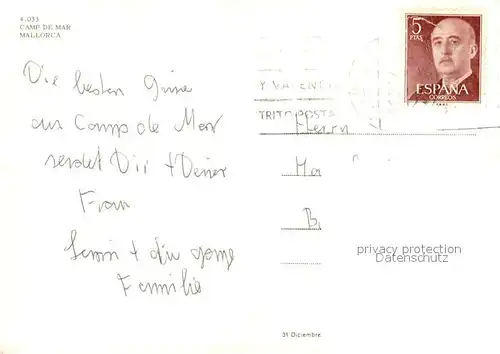 4.033
CAMP DE MAR
MALLORCA
5
PTAS
ESPAÑA
CORREOS
DISTRITO POSTA
Die besten Grüsse
aus Camp de Mar
sendet Dir + Deiner
Frau
+ die ganze
Familie
Herrn
privacy protection
Datenschutz
31 Diciembre